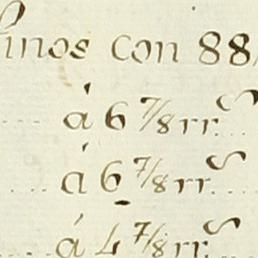 inos con 88
á 6 7/8 rr.s
á 6 7/8 rr.s
á 4 7/8 rr.s